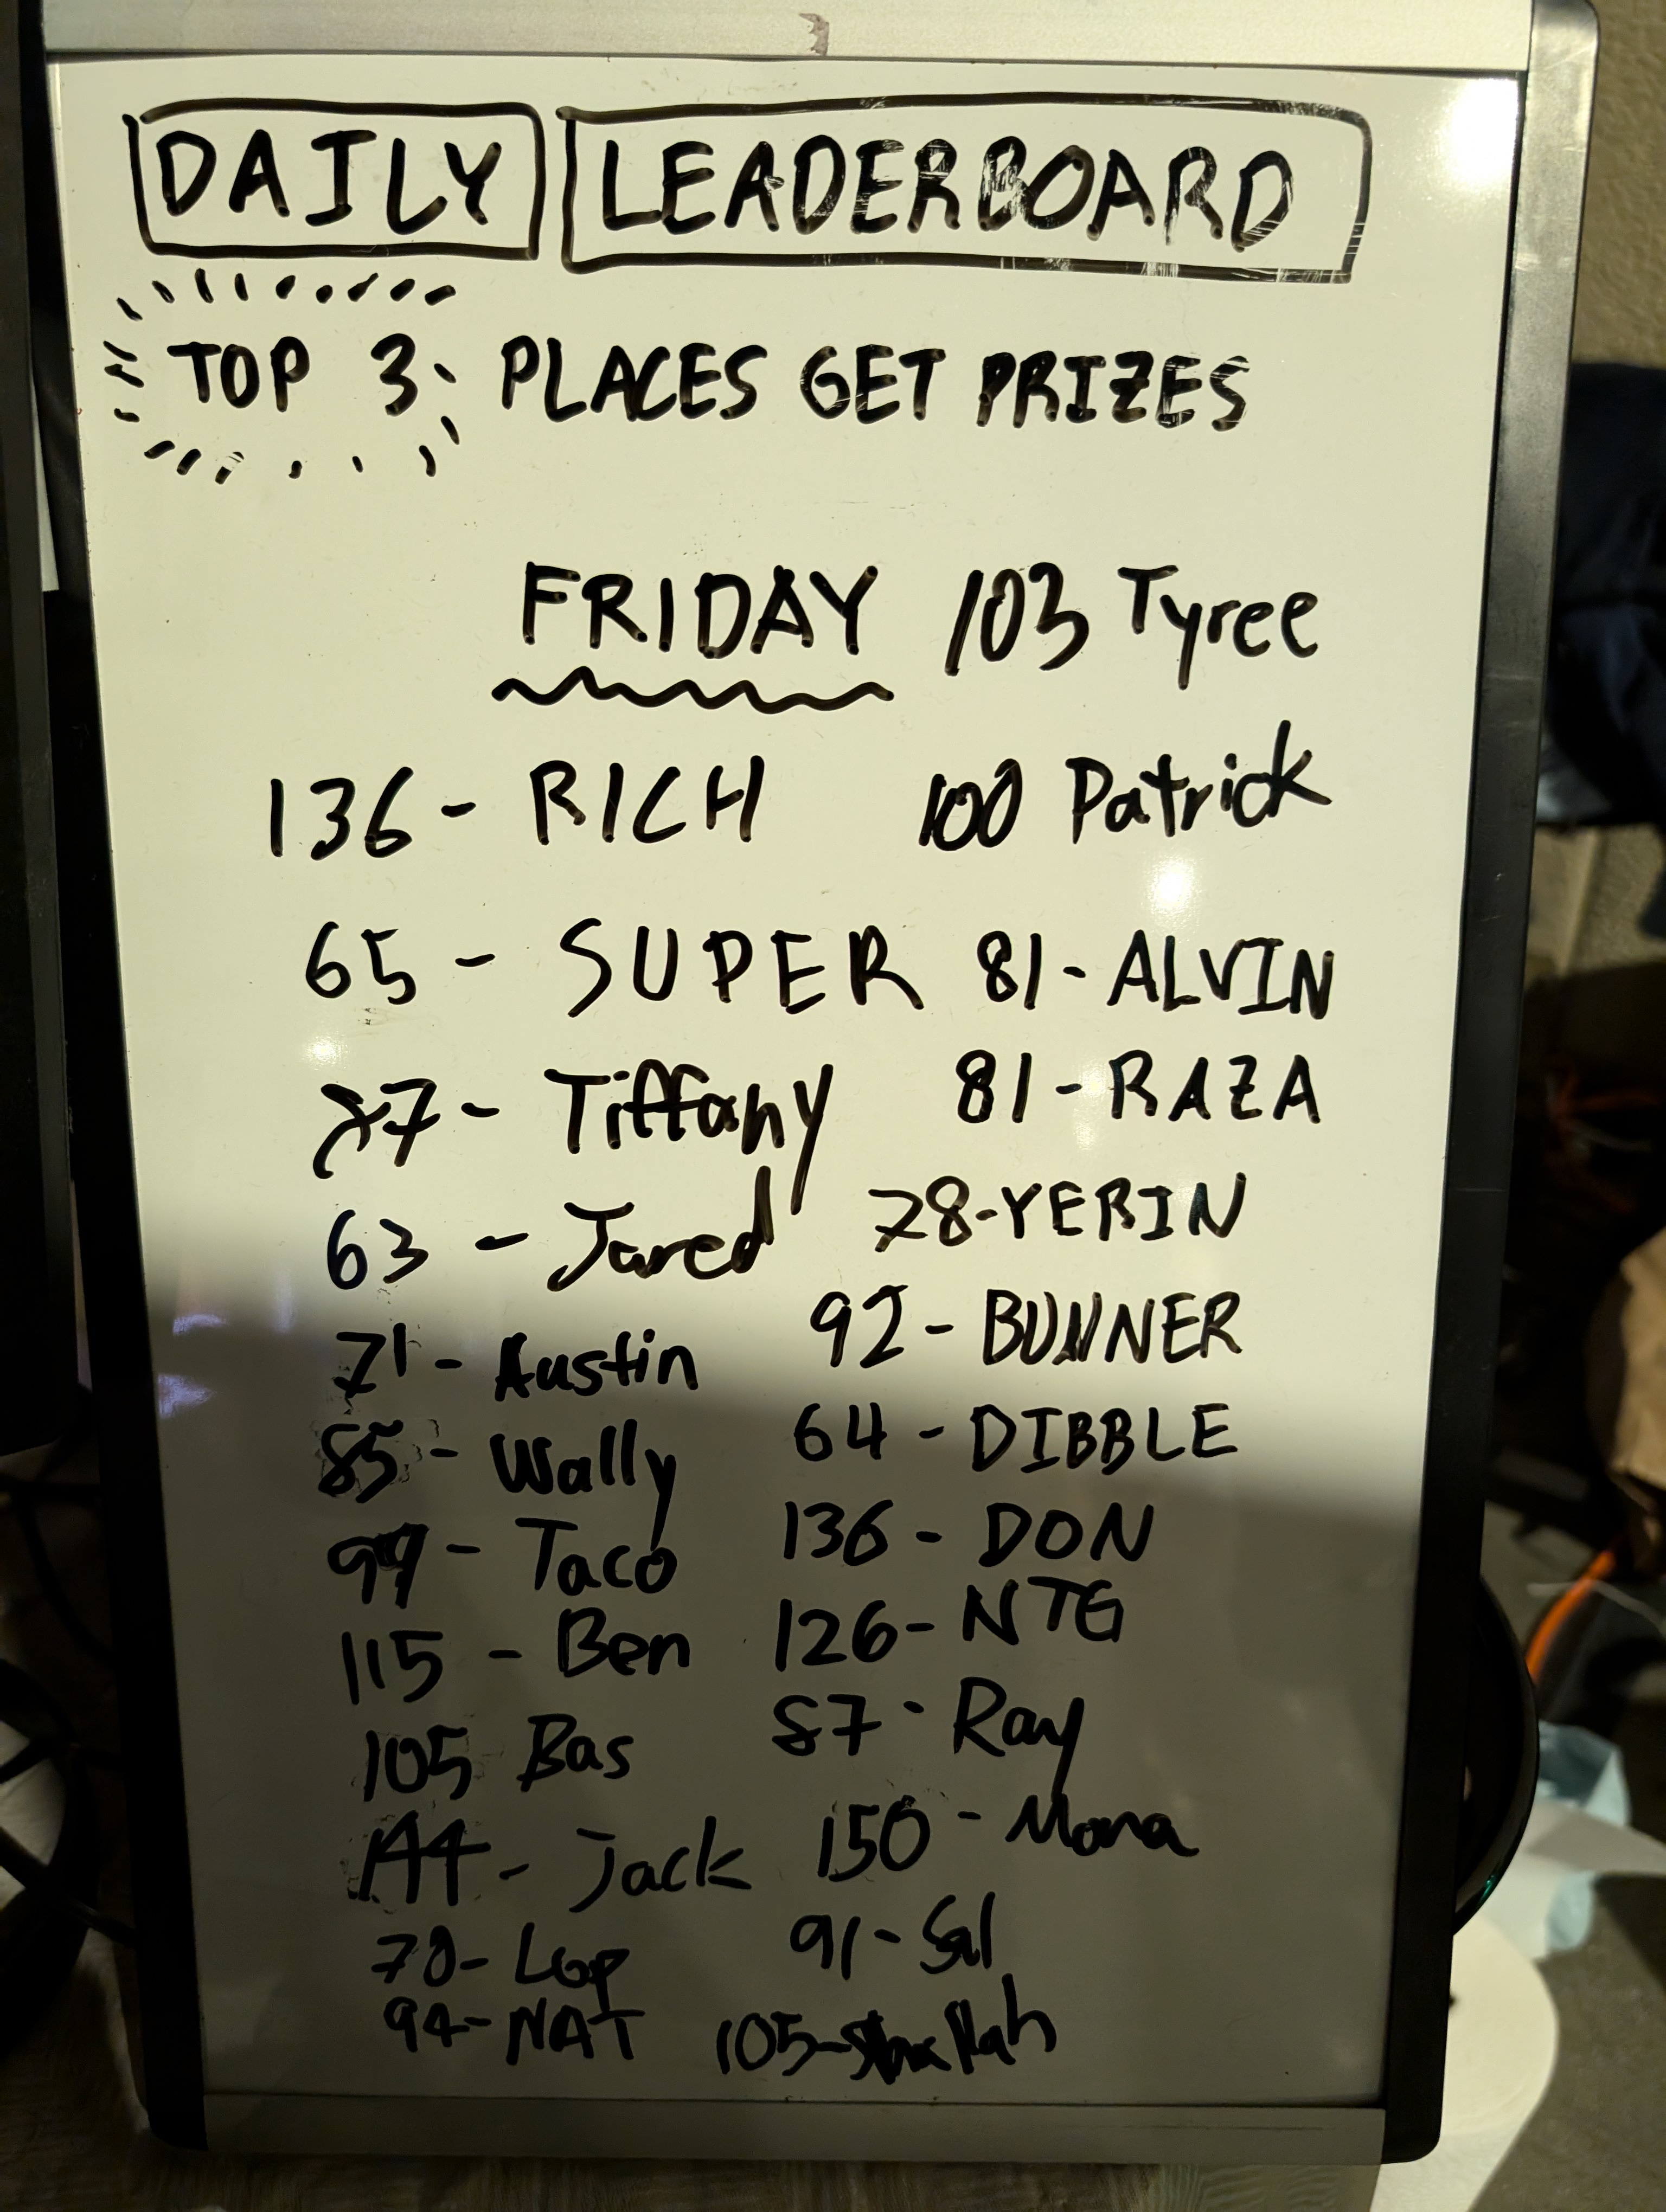 DAILY LEADERBOARD
TOP 3: PLACES GET PRIZES
FRIDAY
136 - RICH
65 - SUPER
77 - Tiffany
63 - Jared
71 - Austin
85 - Wally
99 - Taco
115 - Ben
105 Bas
144 - Jack
70 - Lop
94 - NAT
103 Tyree
100 Patrick
81 - ALVIN
81 - RAZA
78 - YERIN
92 - BUNNER
64 - DIBBLE
136 - DON
126 - NTG
87 - Ray
150 - Mona
91 - Sal
105 -